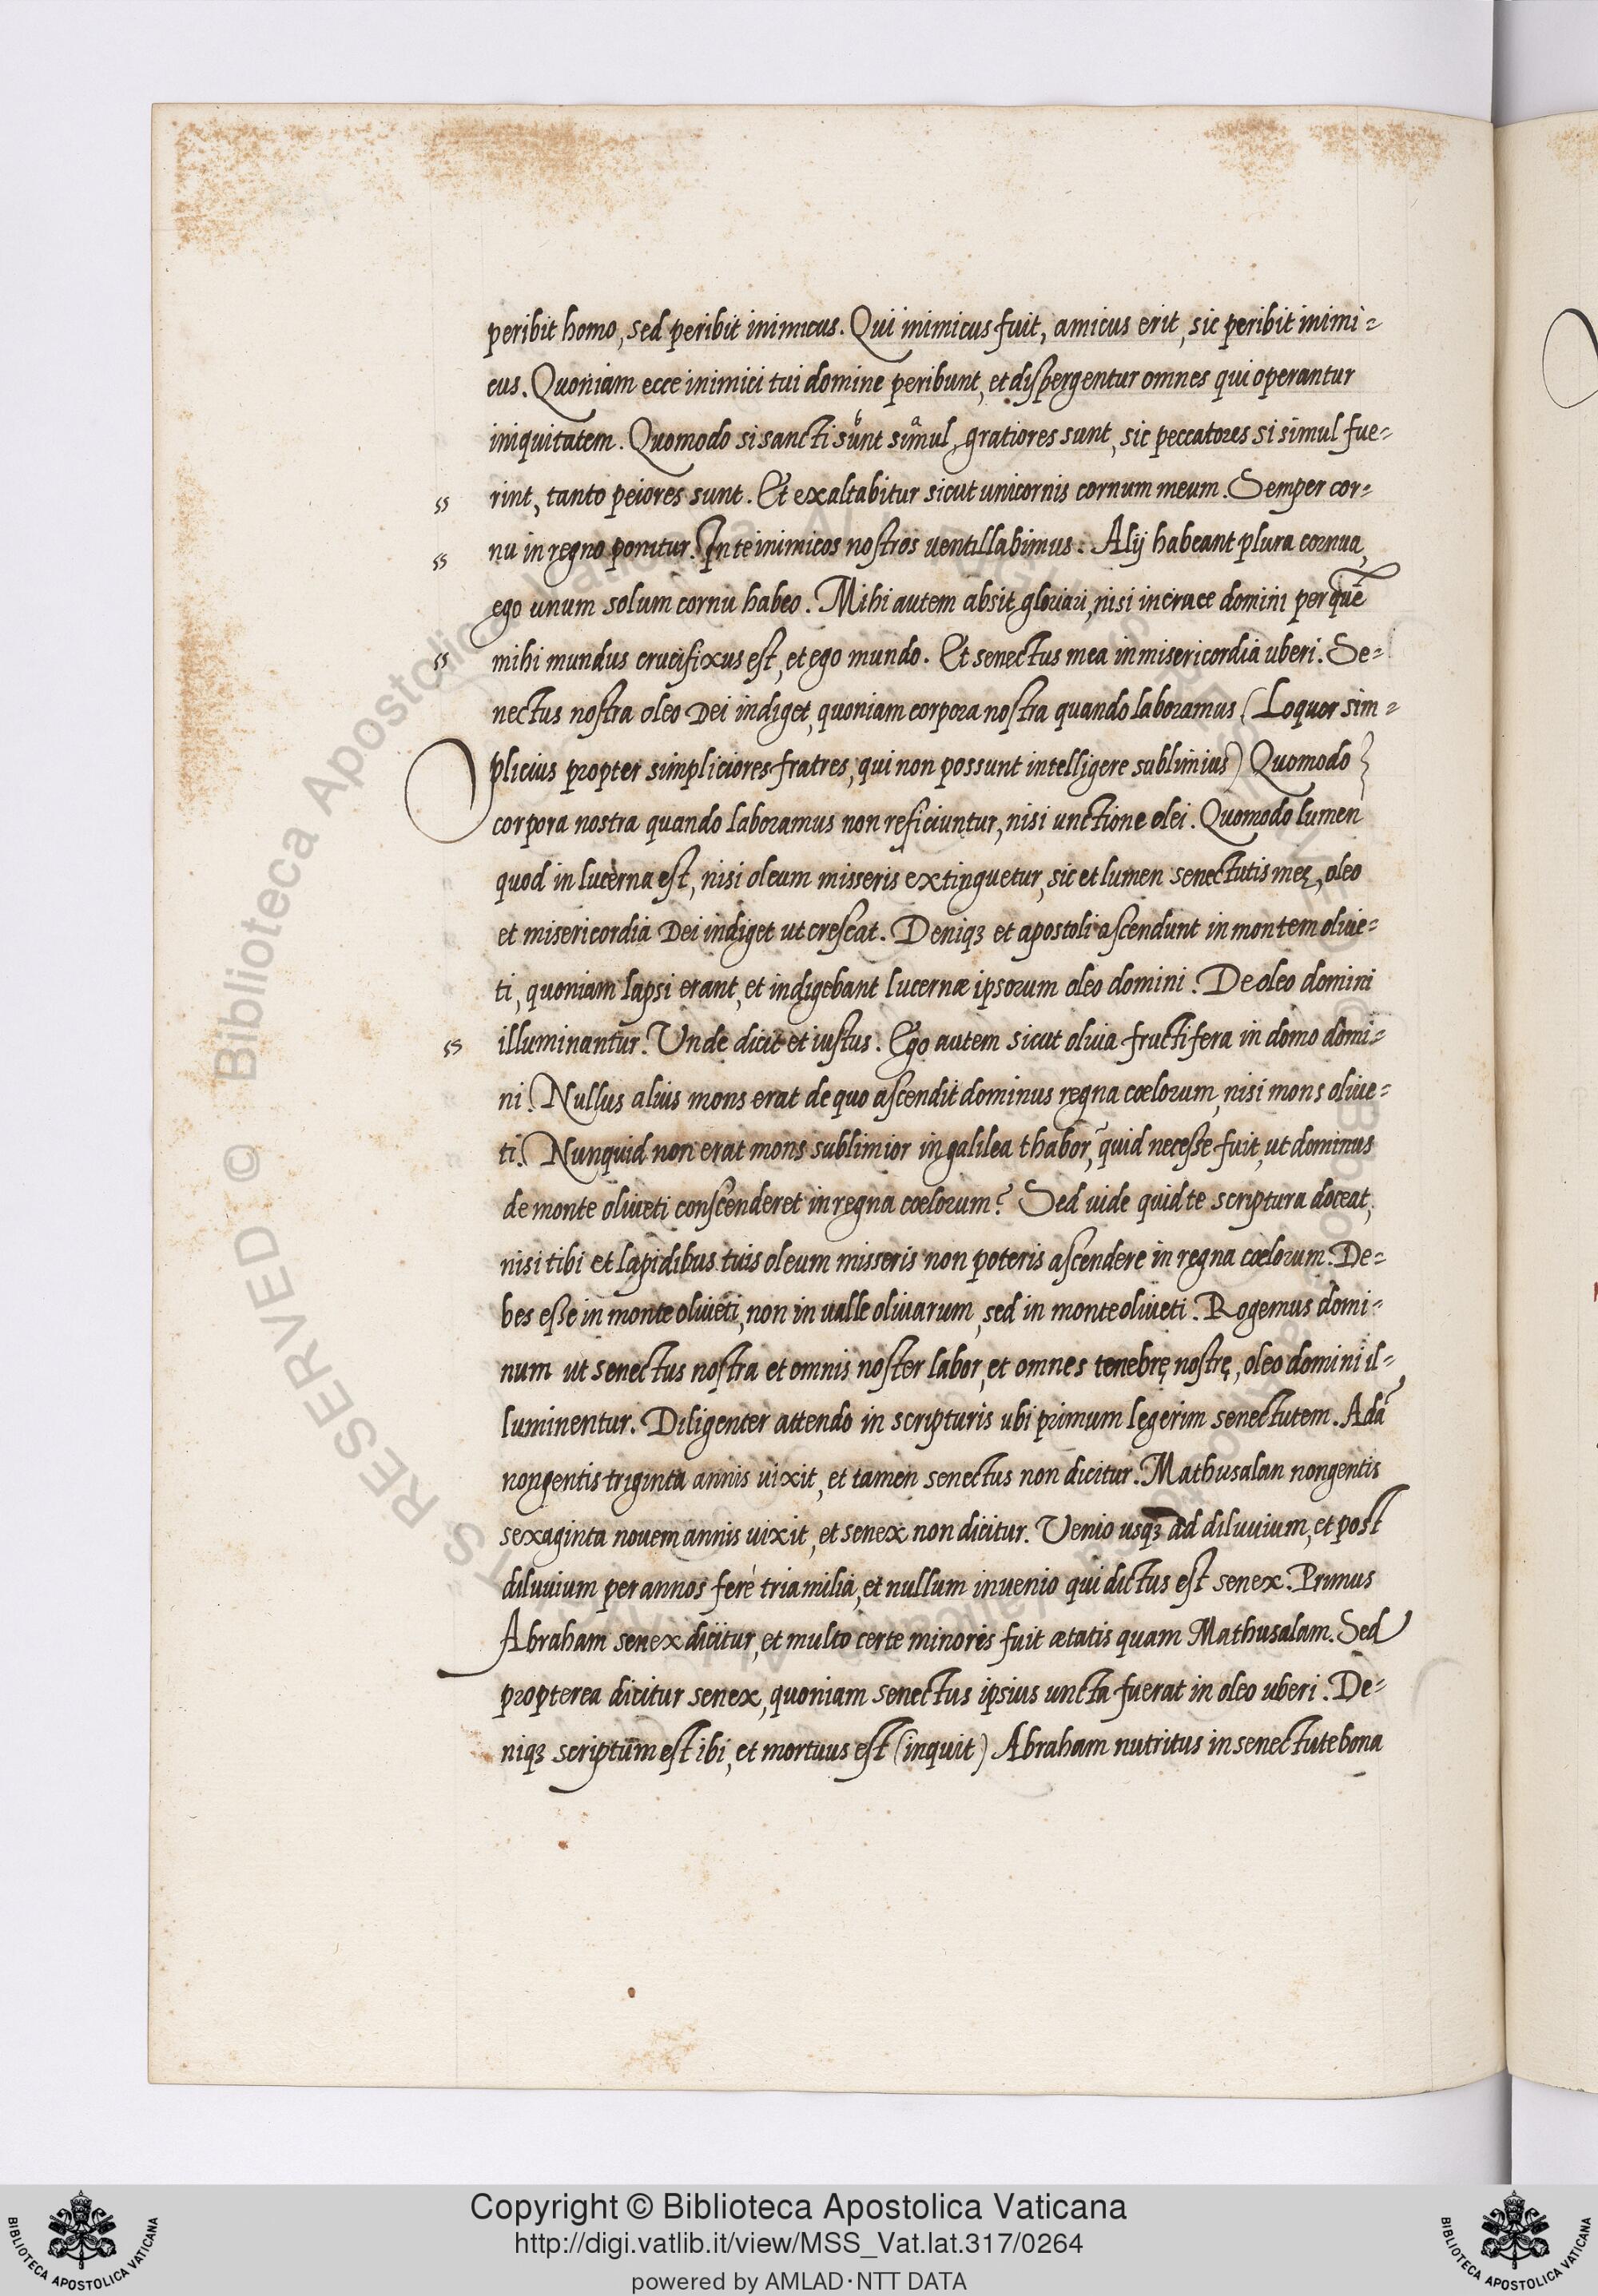 peribit homo, sed peribit inimicus. Qui inimicus fuit, amicus erit, sic peribit inimi=
cus. Quoniam ecce inimici tui domine peribunt, et dispergentur omnes qui operantur
iniquitatem. Quomodo si sancti sunt simul, gratiores sunt, sic peccatores si simul fue=
rint, tanto peiores sunt. Et exaltabitur sicut unicornis cornum meum. Semper cor=
nu in regno ponitur. In te inimicos nostros ventillabimus. Alij habeant plura cornua,
ego unum solum cornu habeo. Mihi autem absit gloriari, nisi in cruce domini per quē
mihi mundus crucifixus est, et ego mundo. Et senectus mea in misericordia uberi. Se=
nectus nostra oleo Dei indiget, quoniam corpora nostra quando laboramus (Loquor sim=
plicius propter simpliciores fratres, qui non possunt intelligere sublimius) Quomodo
corpora nostra quando laboramus non reficiuntur, nisi unctione olei. Quomodo lumen
quod in lucerna est, nisi oleum misseris extinguetur, sic et lumen senectutis meę, oleo
et misericordia Dei indiget ut crescat. Deniqꝫ et apostoli ascendunt in montem olive=
ti, quoniam lapsi erant, et indigebant lucernæ ipsorum oleo domini. De oleo domini
illuminantur. Unde dicit et iustus. Ego autem sicut oliva fructifera in domo domi=
ni. Nullus alius mons erat de quo ascendit dominus regna cœlorum, nisi mons olive=
ti. Nunquid non erat mons sublimior in galilea thabor, quid necesse fuit, ut dominus
de monte oliveti conscenderet in regna cœlorum? Sed vide quid te scriptura doceat,
nisi tibi et lapidibus tuis oleum misseris non poteris ascendere in regna cœlorum. De=
bes esse in monte oliveti, non in valle olivarum, sed in monte oliveti. Rogemus domi=
num ut senectus nostra et omnis noster labor, et omnes tenebrę nostrę, oleo domini il=
luminentur. Diligenter attendo in scripturis ubi primum legerim senectutem. Adā
nongentis triginta annis vixit, et tamen senectus non dicitur. Mathusalan nongentis
sexaginta novem annis vixit, et senex non dicitur. Venio usqꝫ ad diluvium, et post
diluvium per annos ferè tria milia, et nullum invenio qui dictus est senex. Primus
Abraham senex dicitur, et multo certe minoris fuit ætatis quam Mathusalam. Sed
propterea dicitur senex, quoniam senectus ipsius uncta fuerat in oleo uberi. De=
niqꝫ scriptum est ibi, et mortuus est (inquit) Abraham nutritus in senectute bona
© Biblioteca Apostolica Vaticana
Copyright © Biblioteca Apostolica Vaticana
http://digi.vatlib.it/view/MSS_Vat.lat.317/0264
powered by AMLAD·NTT DATA
BIBLIOTECA APOSTOLICA VATICANA
BIBLIOTECA APOSTOLICA VATICANA